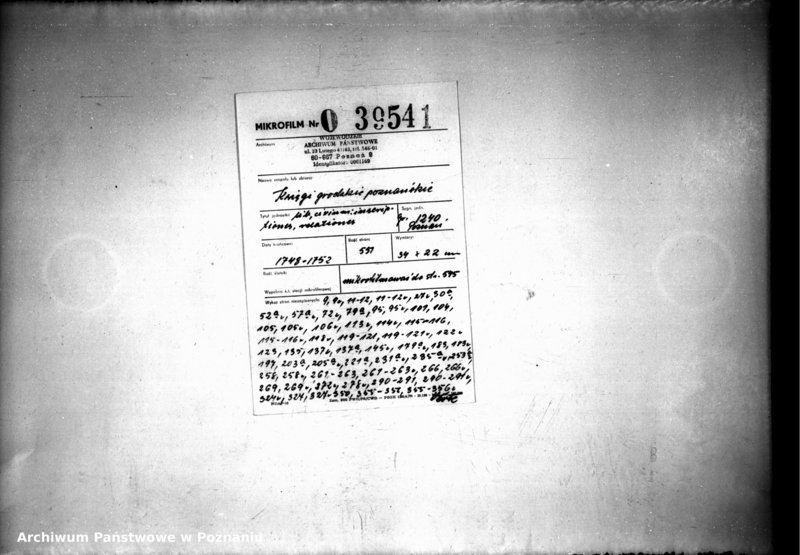 MIKROFILM Nr 0 39541
Archiwum
WOJEWÓDZKIE
ARCHIWUM PAŃSTWOWE
ul. 23 Lutego 41/43, tel. 546-01
60-967 Poznań 9
Identyfikator: 0001169
Nazwa zespołu lub zbioru:
Księgi grodzkie poznańskie
Tytuł jednostki:
inscrip-
tiones, relationes
Sygn. jedn.
Gr. 1240.
Poznań
Daty krańcowe:
1748-1752
Ilość stron:
551
Wymiary:
34 x 22 cm
Ilość klatek:
mikrofilmować do str. 595
Wypełnia k.t. stacji mikrofilmowej
Wykaz stron niezapisanych: 9, 9v, 11-12, 11-12v, 27v, 30a,
52av, 57av, 72v, 79a, 95, 95v, 101, 104,
105, 105v, 106v, 113v, 114v, 115-116,
115-116v, 118v, 119-121, 119-121v, 122v
123, 135, 137v, 137a, 145v, 179av, 183, 183v
197, 203a, 205av, 221a, 231av, 235av, 253a
258, 258v, 261-263, 261-263v, 266, 266v,
269, 269v, 272v, 278v, 290-291, 290-291v,
324v, 324, 327-350, 355-356, 355-356v
Archiwum Państwowe w Poznaniu